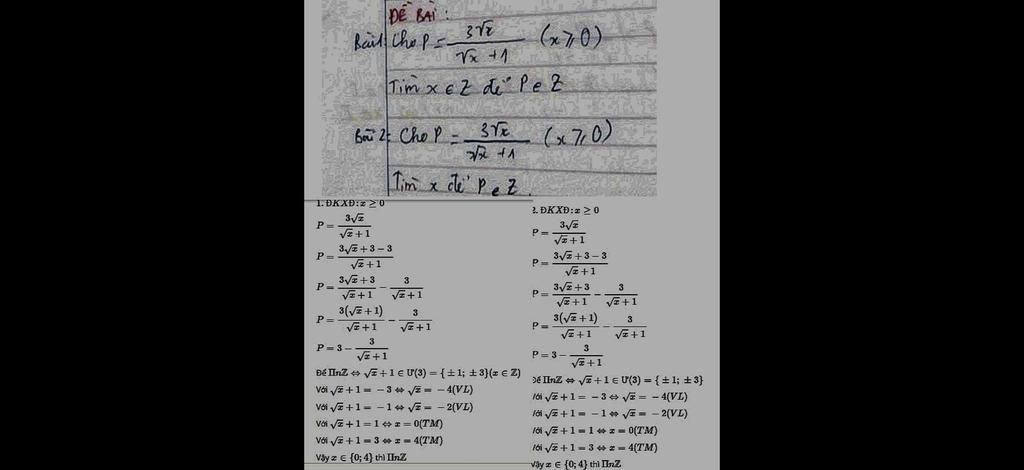 ĐỀ BÀI :
Bài 1: Cho P = 3√x / (√x + 1) (x ⩾ 0)
Tìm x ∈ Z để P ∈ Z
Bài 2: Cho P = 3√x / (√x + 1) (x ⩾ 0)
Tìm x để P ∈ Z.
1. ĐKXĐ: x ≥ 0
P = 3√x / (√x + 1)
P = (3√x + 3 − 3) / (√x + 1)
P = (3√x + 3) / (√x + 1) − 3 / (√x + 1)
P = 3(√x + 1) / (√x + 1) − 3 / (√x + 1)
P = 3 − 3 / (√x + 1)
Để ΠnZ ⇔ √x + 1 ∈ Ư(3) = {±1; ±3}(x ∈ Z)
Với √x + 1 = −3 ⇔ √x = −4(VL)
Với √x + 1 = −1 ⇔ √x = −2(VL)
Với √x + 1 = 1 ⇔ x = 0(TM)
Với √x + 1 = 3 ⇔ x = 4(TM)
Vậy x ∈ {0; 4} thì ΠnZ
2. ĐKXĐ: x ≥ 0
P = 3√x / (√x + 1)
P = (3√x + 3 − 3) / (√x + 1)
P = (3√x + 3) / (√x + 1) − 3 / (√x + 1)
P = 3(√x + 1) / (√x + 1) − 3 / (√x + 1)
P = 3 − 3 / (√x + 1)
Để ΠnZ ⇔ √x + 1 ∈ Ư(3) = {±1; ±3}
Với √x + 1 = −3 ⇔ √x = −4(VL)
Với √x + 1 = −1 ⇔ √x = −2(VL)
Với √x + 1 = 1 ⇔ x = 0(TM)
Với √x + 1 = 3 ⇔ x = 4(TM)
Vậy x ∈ {0; 4} thì ΠnZ